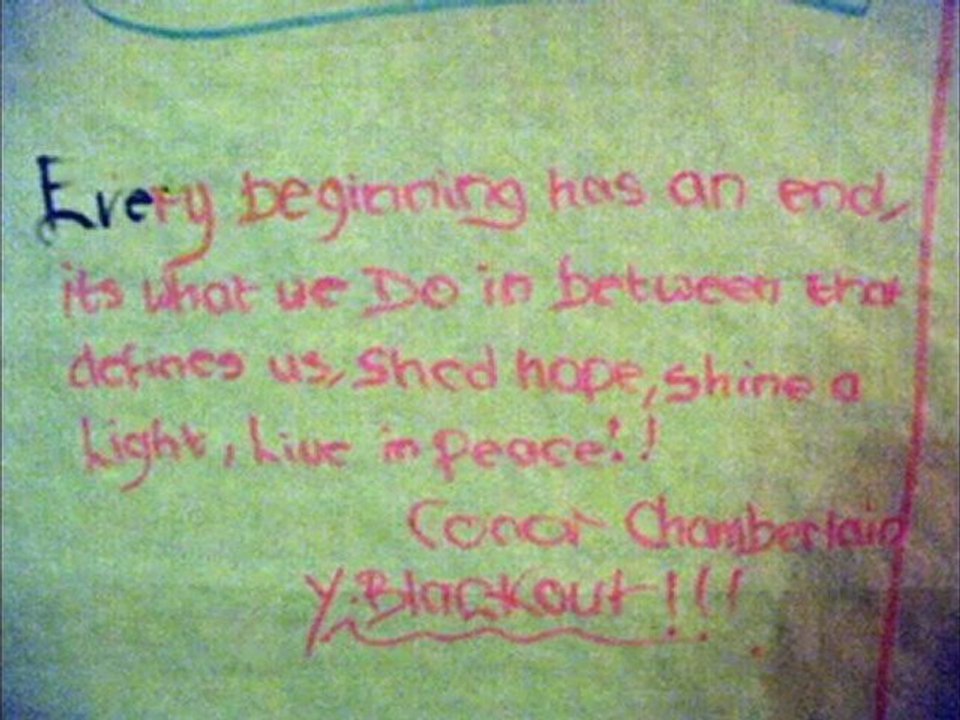 Every beginning has an end,
its what we Do in between that
defines us, Shed hope, shine a
Light, Live in peace!!
Conor Chamberlain
Y.Blackout!!!